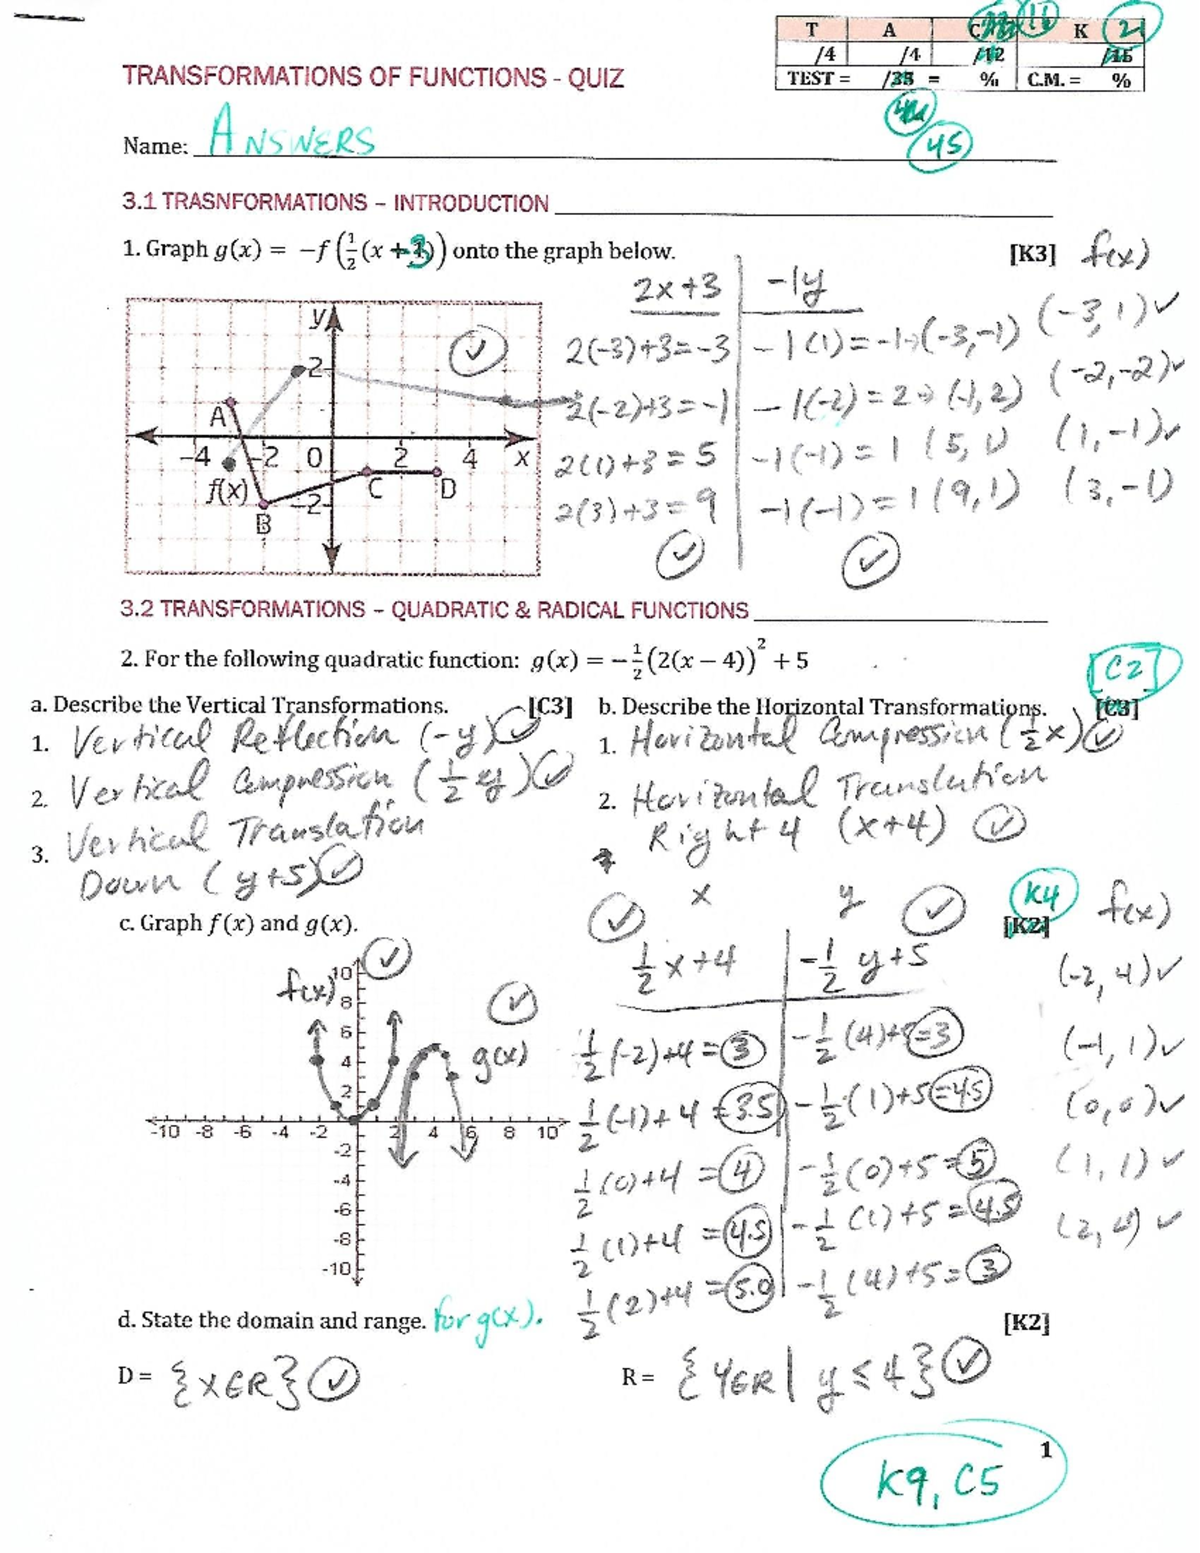 T A C K 21
/4 /4 /12 /15
TEST = /35 = % C.M. = %
45
TRANSFORMATIONS OF FUNCTIONS - QUIZ
Name: ANSWERS
3.1 TRASNFORMATIONS – INTRODUCTION
1. Graph g(x) = −f(1/2(x + 3)) onto the graph below. [K3] f(x)
2x+3 -1y
2(-3)+3=-3 -1(1)=-1→(-3,-1) (-3,1)✓
2(-2)+3=-1 -1(-2)=2→(-1,2) (-2,-2)✓
2(1)+3=5 -1(-1)=1 (5,1) (1,-1)✓
2(3)+3=9 -1(-1)=1 (9,1) (3,-1)
y
2
A
-4 -2 0 2 4 x
f(x) -2 C D
B
3.2 TRANSFORMATIONS – QUADRATIC & RADICAL FUNCTIONS
2. For the following quadratic function: g(x) = −1/2(2(x − 4))² + 5
[C2]
a. Describe the Vertical Transformations. [C3]
1. Vertical Reflection (-y) ✓
2. Vertical Compression (1/2 y) ✓
3. Vertical Translation
Down (y+5) ✓
b. Describe the Horizontal Transformations. [C3]
1. Horizontal Compression (1/2 x) ✓
2. Horizontal Translation
Right 4 (x+4) ✓
c. Graph f(x) and g(x). K4 [K2] f(x)
x y
1/2 x+4 -1/2 y+5
1/2(-2)+4=3 -1/2(4)+5=3 (-2,4)✓
1/2(-1)+4=3.5 -1/2(1)+5=4.5 (-1,1)✓
1/2(0)+4=4 -1/2(0)+5=5 (0,0)✓
1/2(1)+4=4.5 -1/2(1)+5=4.5 (1,1)✓
1/2(2)+4=5.0 -1/2(4)+5=3 (2,4)✓
f(x) 10
8
6
4 g(x)
2
-10 -8 -6 -4 -2 2 4 6 8 10
-2
-4
-6
-8
-10
d. State the domain and range. for g(x). [K2]
D = {XER} ✓ R = {YER | y ≤ 4} ✓
1
K9, C5